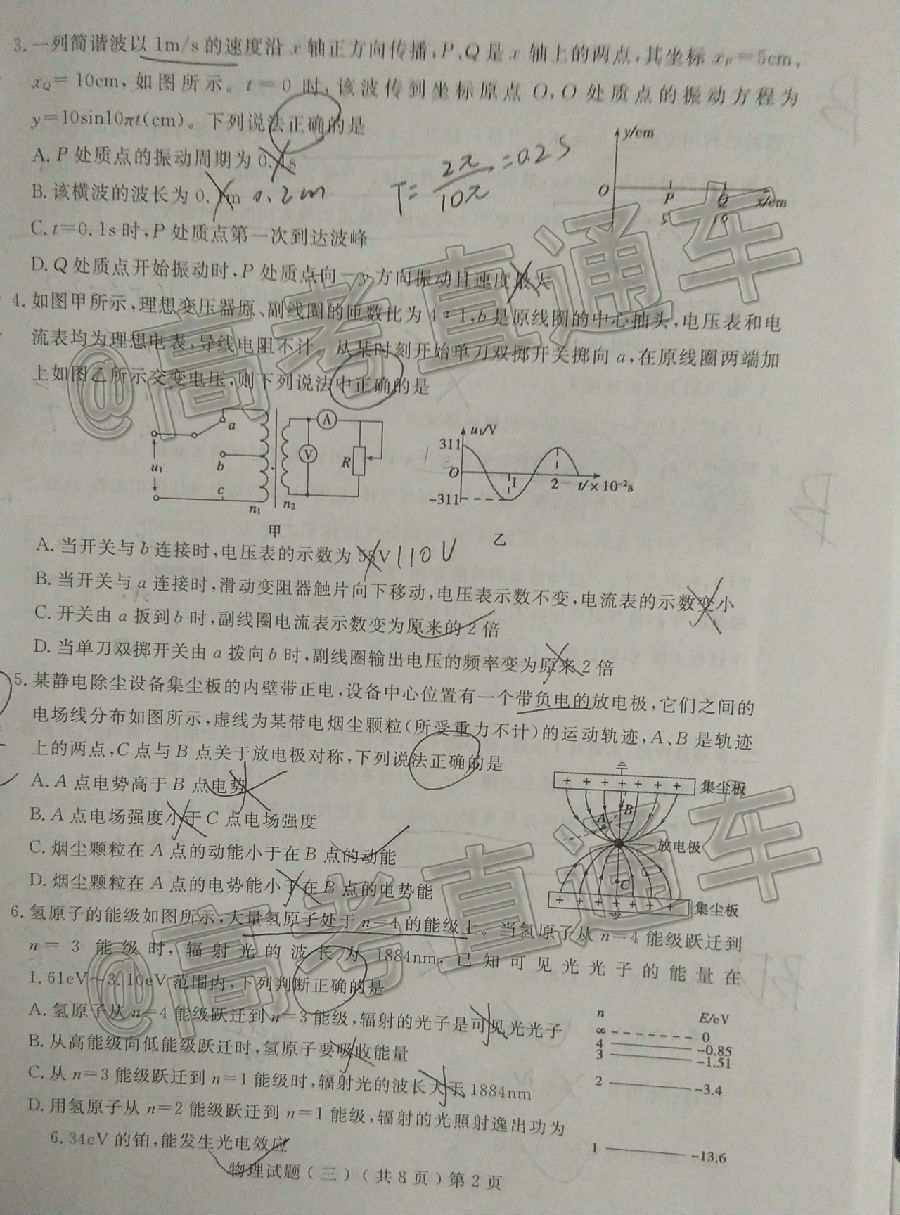 3.一列简谐波以1m/s的速度沿x轴正方向传播,P、Q是x轴上的两点,其坐标xP=5cm,
xQ=10cm,如图所示。t=0时,该波传到坐标原点O,O处质点的振动方程为
y=10sin10πt(cm)。下列说法正确的是
A.P处质点的振动周期为0.1s
T=2π/10π=0.2S
B.该横波的波长为0. m 0.2m
C.t=0.1s时,P处质点第一次到达波峰
D.Q处质点开始振动时,P处质点向-y方向振动且速度最大
y/cm
O P Q x/cm
5 10
4.如图甲所示,理想变压器原、副线圈的匝数比为4:1,b是原线圈的中心抽头,电压表和电
流表均为理想电表,导线电阻不计。从某时刻开始单刀双掷开关掷向a,在原线圈两端加
上如图乙所示交变电压,则下列说法中正确的是
a b c u₁ n₁ n₂ V A R
甲
u₁/V
311
O 1 2 t/×10⁻²s
-311
乙
A.当开关与b连接时,电压表的示数为55V 110V
B.当开关与a连接时,滑动变阻器触片向下移动,电压表示数不变,电流表的示数变小
C.开关由a扳到b时,副线圈电流表示数变为原来的2倍
D.当单刀双掷开关由a拨向b时,副线圈输出电压的频率变为原来2倍
5.某静电除尘设备集尘板的内壁带正电,设备中心位置有一个带负电的放电极,它们之间的
电场线分布如图所示,虚线为某带电烟尘颗粒(所受重力不计)的运动轨迹,A、B是轨迹
上的两点,C点与B点关于放电极对称,下列说法正确的是
A.A点电势高于B点电势
B.A点电场强度小于C点电场强度
C.烟尘颗粒在A点的动能小于在B点的动能
D.烟尘颗粒在A点的电势能小于在B点的电势能
+ + + + + + + 集尘板
A B
放电极
C
+ + + + + + + 集尘板
6.氢原子的能级如图所示,大量氢原子处于n=4的能级上。当氢原子从n=4能级跃迁到
n=3能级时,辐射光的波长为1884nm,已知可见光光子的能量在
1.61eV~3.10eV范围内,下列判断正确的是
A.氢原子从n=4能级跃迁到n=3能级,辐射的光子是可见光光子
B.从高能级向低能级跃迁时,氢原子要吸收能量
C.从n=3能级跃迁到n=1能级时,辐射光的波长大于1884nm
D.用氢原子从n=2能级跃迁到n=1能级,辐射的光照射逸出功为
6.34eV的铂,能发生光电效应
n E/eV
∞ 0
4 -0.85
3 -1.51
2 -3.4
1 -13.6
物理试题(三)(共8页)第2页
@高考直通车
@高考直通车